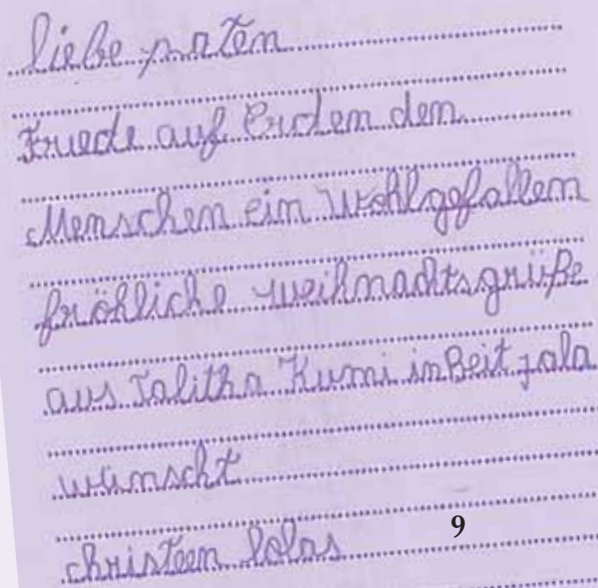 liebe paten
Friede auf Erden den
Menschen ein Wohlgefallen
fröhliche weihnachtsgrüße
aus Talitha Kumi in Beit jala
wünscht
christeen
9